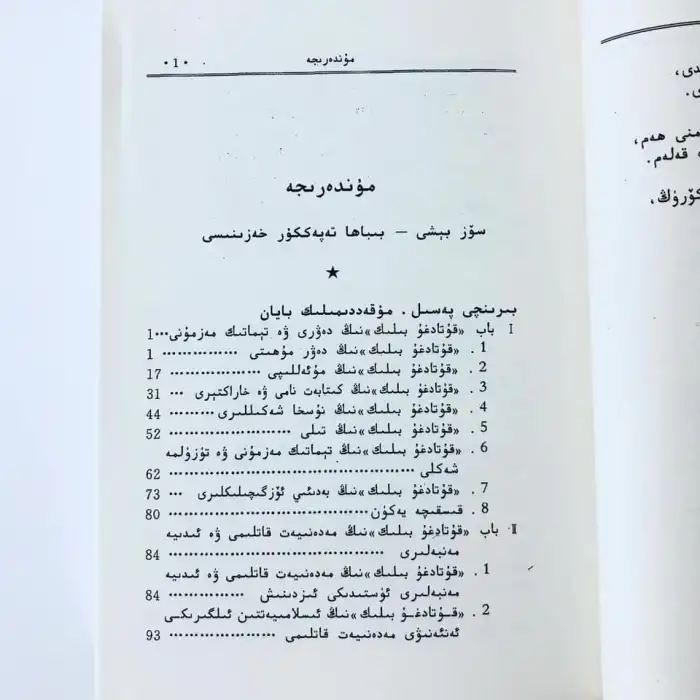 مۇندەرىجە · 1 ·
مۇندەرىجە
سۆز بېشى — بىباھا تەپەككۇر خەزىنىسى
★
بىرىنچى پەسىل . مۇقەددىمىلىك بايان
I باب «قۇتادغۇ بىلىك»نىڭ دەۋرى ۋە تېماتىك مەزمۇنى···1
1 . «قۇتادغۇ بىلىك»نىڭ دەۋر مۇھىتى ··············· 1
2 . «قۇتادغۇ بىلىك»نىڭ مۇئەللىپى ·················· 17
3 . «قۇتادغۇ بىلىك»نىڭ كىتابەت نامى ۋە خاراكتېرى ··· 31
4 . «قۇتادغۇ بىلىك»نىڭ نۇسخا شەكىللىرى········· 44
5 . «قۇتادغۇ بىلىك»نىڭ تىلى ························ 52
6 . «قۇتادغۇ بىلىك»نىڭ تېماتىك مەزمۇنى ۋە تۈزۈلمە
شەكلى ················································ 62
7 . «قۇتادغۇ بىلىك»نىڭ بەدىئىي ئۆزگىچىلىكلىرى ··· 73
8 . قىسقىچە يەكۈن··································· 80
II باب «قۇتادغۇ بىلىك»نىڭ مەدەنىيەت قاتلىمى ۋە ئىدىيە
مەنبەلىرى ········································· 84
1 . «قۇتادغۇ بىلىك»نىڭ مەدەنىيەت قاتلىمى ۋە ئىدىيە
مەنبەلىرى ئۈستىدىكى ئىزدىنىش ··············· 84
2 . «قۇتادغۇ بىلىك»نىڭ ئىسلامىيەتتىن ئىلگىرىكى
ئەنئەنىۋى مەدەنىيەت قاتلىمى ····················· 93
ھەم،
قەلەم.